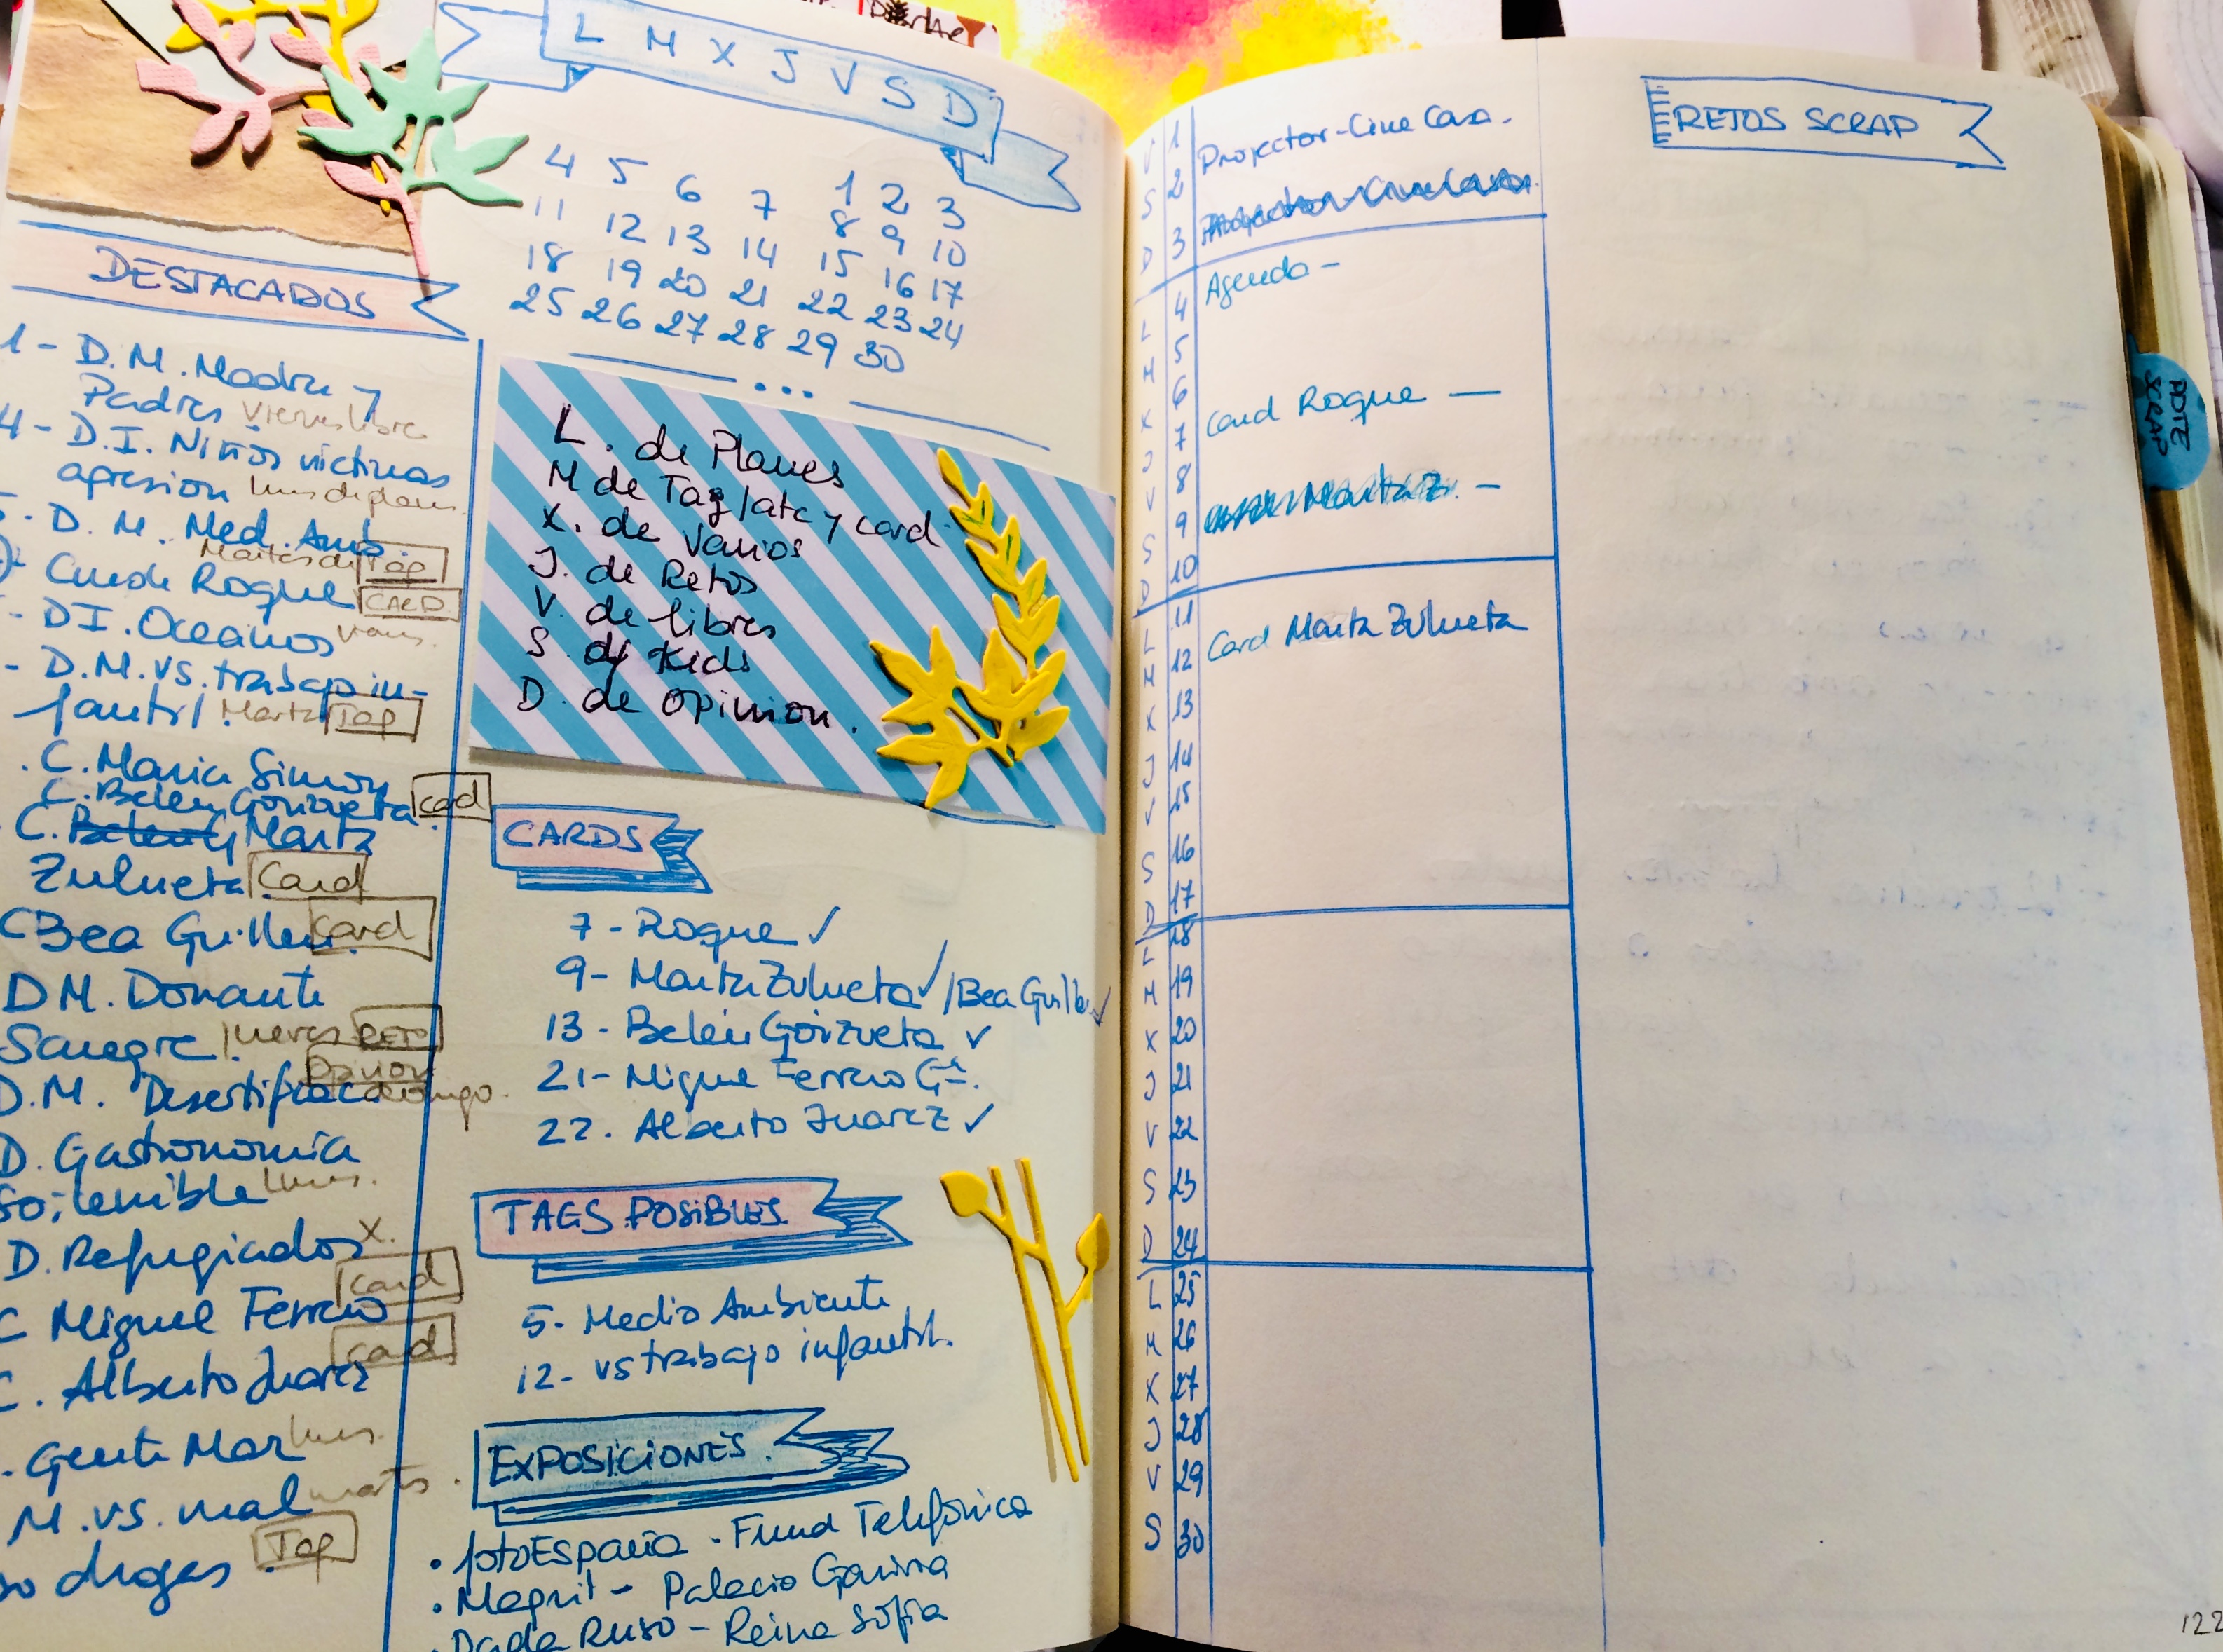 L M X J V S D
1 2 3
4 5 6 7 8 9 10
11 12 13 14 15 16 17
18 19 20 21 22 23 24
25 26 27 28 29 30
DESTACADOS
1 - D.M. Madres y
Padres Viernes libre
4 - D.I. Niños víctimas
agresion lunes de planes
5 - D. M. Med. Amb.
Martes de Tag
Cumple Roque CARD
- DI. Oceanos varios.
- D.M. vs. trabajo in-
fantil. Martes Tag
. C. Maria Simon
C. Belen Gorizueta. Card
. C. Belen G Marta
Zulueta Card
C Bea Guillen. Card
DM. Donante
Sangre. Jueves RETO
Opinion
D.M. Desertificac domingo.
D. Gastronomía
Sostenible lunes.
D. Refugiados X.
C Miguel Ferreiro Card
C. Alberto Juarez Card
. Gente Mar lunes.
M. vs. mal martes.
so drogas. Tag
L. de Planes
M de Tag/atc y card.
X. de Varios
J. de Retos
V. de libres
S. de Kids
D. de Opinion.
CARDS
7 - Roque ✓
9 - Marta Zulueta ✓ / Bea Guillen ✓
13 - Belén Gorizueta ✓
21 - Miguel Ferreiro Gª.
22. Alberto Juarez ✓
TAGS POSIBLES
5 - Medio Ambiente
12 - vs trabajo infantil.
EXPOSICIONES.
• fotoEspaña - Fund Telefónica
• Magrit - Palacio Gaviria
. Dada Ruso - Reina Sofia
V 1 Projector - Cine Casa.
S 2
D 3
L 4 Agenda -
M 5
X 6
J 7 Card Roque —
V 8
S 9 Marta Z. -
D 10
L 11
M 12 Card Marta Zulueta
X 13
J 14
V 15
S 16
D 17
L 18
M 19
X 20
J 21
V 22
S 23
D 24
L 25
M 26
X 27
J 28
V 29
S 30
RETOS SCRAP
ADTE
SCRAP
122